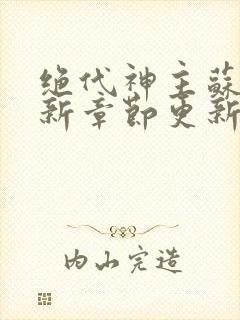 绝代神主蘇
新章節更新
内山完造